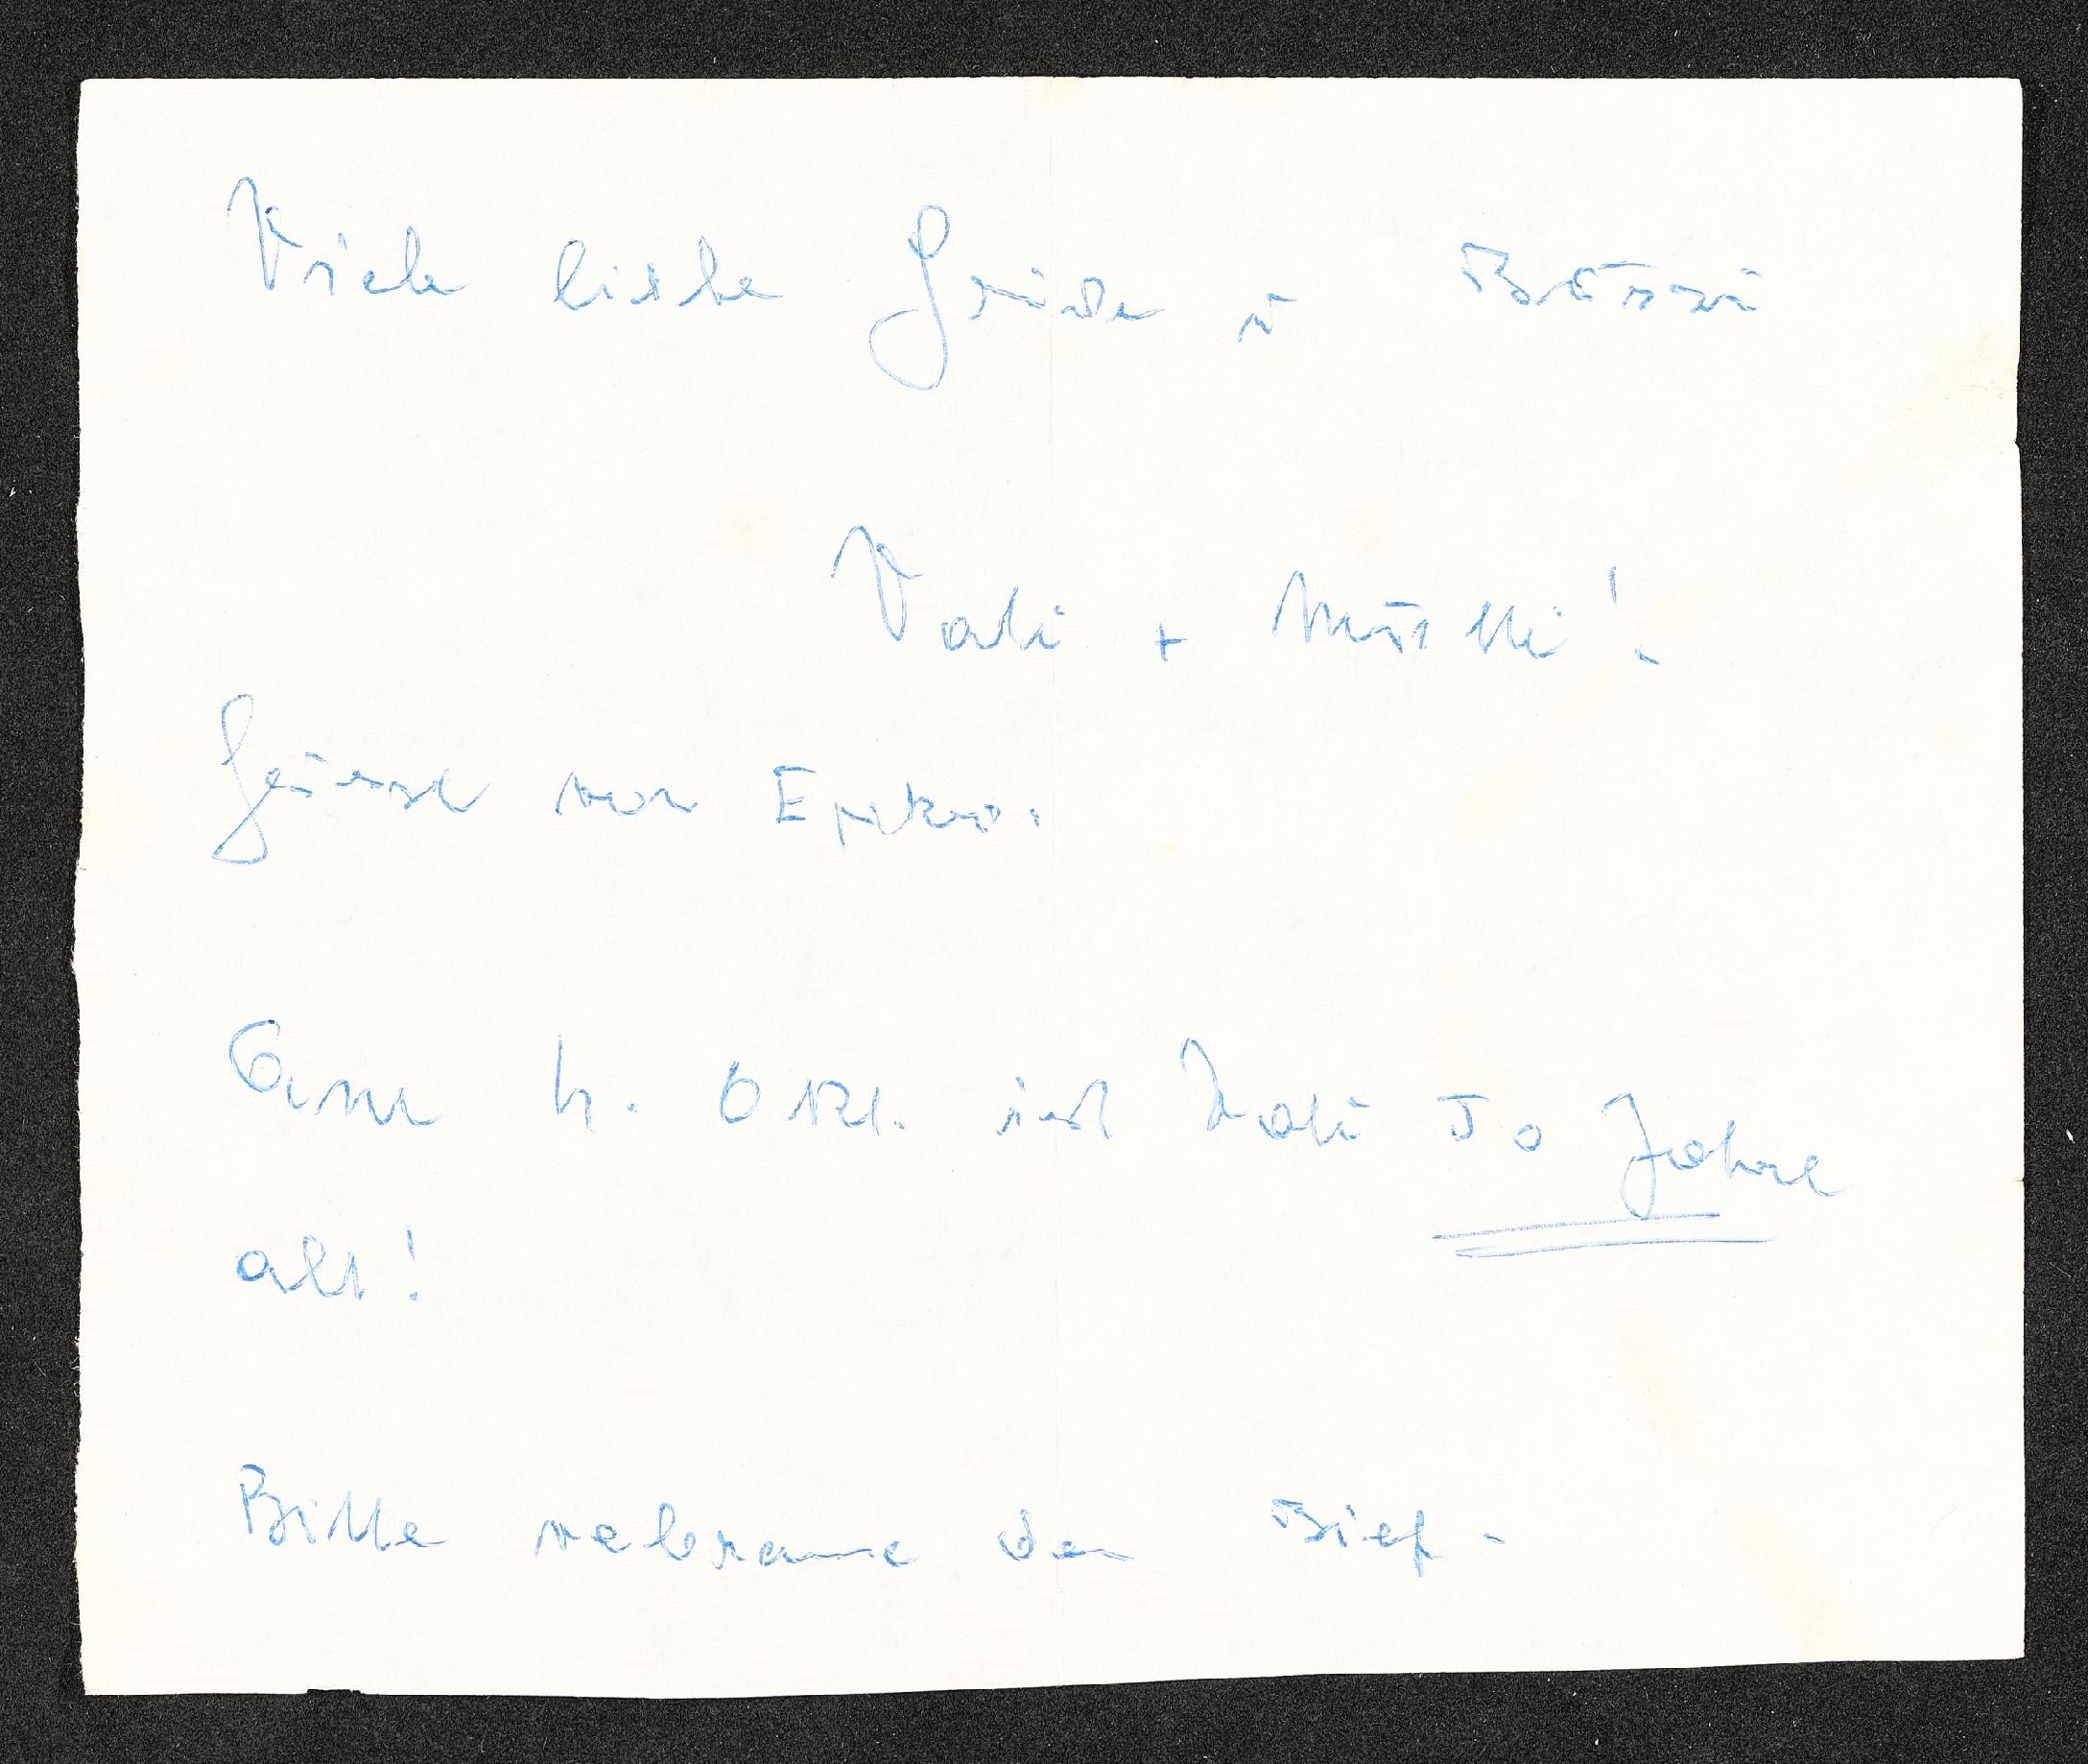 Viele liebe Grüße u Bussi
Vati + Mutti!
Grüsse von
Am 4. Okt. ist Vati 70 Jahre
alt!
Bitte verbrenne den Brief -